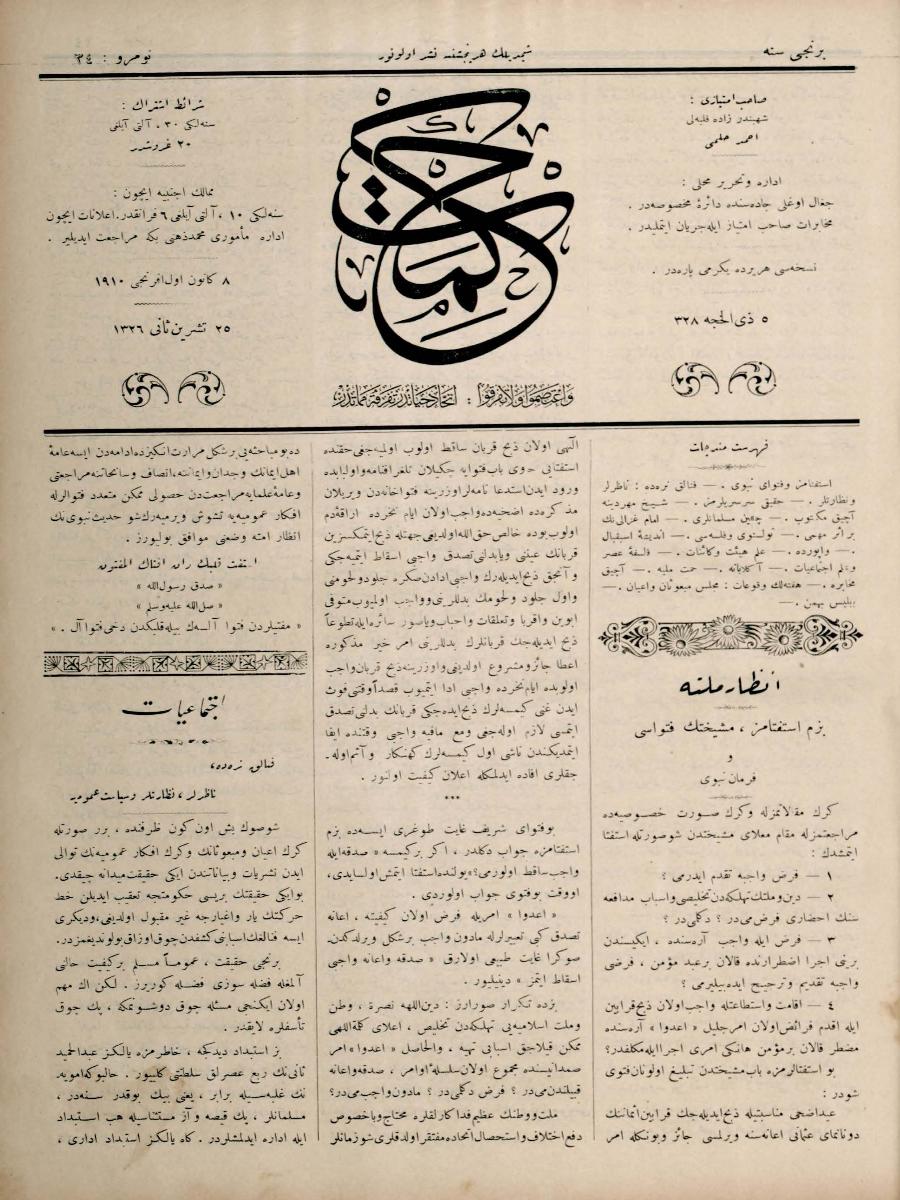 برنجی سنه
شیمدیلك هر پنجشنبه نشر اولونور
نومرو : ٣٤
صاحب امتیازی :
شهبندر زاده فلبه‌لی
احمد حلمی
اداره و تحریر محلی :
جغال اوغلی جاده‌سنده دائرهٔ مخصوصه‌در .
مخابرات صاحب امتیاز ایله جریان ایتملیدر .
نسخه‌سی هر یرده یكرمی پاره‌در .
٥ ذی الحجه ٣٢٨
حكمت
واعتصموا ولا تفرقوا : اتحاد حیاتدر تفرقه مماتدر
شرائط اشتراك :
سنه‌لكی ٣٠ ، آلتی آیلغی
٢٠ غروشدر
ممالك اجنبیه ایچون :
سنه‌لكی ١٠ ، آلتی آیلغی ٦ فرانقدر. اعلانات ایچون
اداره مأموری محمد ذهنی بكه مراجعت ایدیلیر .
٨ كانون اول افرنجی ١٩١٠
٢٥ تشرین ثانی ١٣٢٦
فهرست مندرجات
استفتامز وفتوای نبوی . — فنالق نره‌ده : ناظرلر
ونظارتلر . — حقیقی سرسریلرمز . — شیخ مهردینه
آچیق مكتوب . — چین مسلمانلری . — امام غزالی‌نك
بر اثر مهمی . — تولستوی وفلسفه‌سی . — اندیشهٔ استقبال
. — واپورده . — علم هیئت وكائنات . — فلسفهٔ عصر
وعلم اجتماعیات . — آكلایانه . — حمت ملیه . — آچیق
مخابره . — هفته‌لك وقوعات : مجلس مبعوثان واعیان . —
بیلیس بهمن . —
انظار ملته
بزم استفتامز ، مشیختك فتواسی
و
فرمان نبوی
كرك مقالاتمزله وكرك صورت خصوصیه‌ده
مراجعتمزله مقام معلای مشیختدن شو صورتله استفتا
ایتمشدك :
١ — فرض واجبه تقدم ایدرمی ؟
٢ — دین وملتك تهلكه‌دن تخلیصی واسباب مدافعه
سنك احضاری فرض می‌در ؟ دكلمی‌در ؟
٣ — فرض ایله واجب آره‌سنده ، ایكیسندن
برینی اجرا اضطرارنده قالان بر عبد مؤمن ، فرضی
واجبه تقدیم وترجیح ایده‌بیلیرمی ؟
٤ — اقامت واستطاعتله واجب اولان ذبح قرابین
ایله اقدم فرائض اولان امر جلیل « اعدوا » آره‌سنده
مضطر قالان بر مؤمن هانكی امری اجرا ایله مكلفدر؟
بو استفتالرمزه باب مشیختدن تبلیغ اولونان فتوی
شودر :
عید اضحی مناسبتیله ذبح ایدیله‌جك قرابین اثماننك
دونانمای عثمانی اعانه‌سنه ویرلمسی جائز وبونكله امر
الهی اولان ذبح قربان ساقط اولوب اولمیه‌جغی حقنده
استفتائی حاوی باب فتوایه چكیلان تلغرافنامه واولبابده
ورود ایدن استدعا نامه‌لر اوزرینه فتواخانه‌دن ویریلان
مذكره‌ده اضحیه‌ده واجب اولان ایام نحرده اراقهٔ دم
اولوب بوده خالص حق الله اولدیغی جهتله ذبح ایتمكسزین
قربانك عینی ویا بدلنی تصدق واجبی اسقاط ایتمیه‌جكی
وآنجق ذبح ایدیله‌رك واجبی ادا دن صكره جلود ولحومنی
واول جلود ولحومك بدللرینی وواجب اولمیوب متوفی
ابوین واقربا وتعلقات واحباب ویاسور سائره ایله تطوعاً
ذبح ایدیله‌جك قربانلرك بدللرینی امر خیر مذكوره
اعطا جائز ومشروع اولدیغی واوزرینه ذبح قربان واجب
اولوبده ایام نحرده واجبی ادا ایتمیوب قصداً وقتنی فوت
ایدن غنی كیمسه‌لرك ذبح ایده‌جكی قربانك بدلنی تصدق
ایتمسی لازم اوله‌جغی ومع مافیه واجبی وقتنده ایفا
ایتمدیكندن ناشی اول كیمسه‌لرك كهنكار وآثم اوله‌
جقلری افاده ایدلمكله اعلان كیفیت اولنور .
***
بو فتوای شریف غایت طوغری ایسه‌ده بزم
استفتامزه جواب دكلدر ، اكر بر كیمسه « صدقه ایله
واجب ساقط اولورمی؟» یولنده استفتا ایتمش اولسایدی،
او وقت بو فتوی جواب اولوردی .
« اعدوا » امریله فرض اولان كیفیته ، اعانه
تصدق كبی تعبیرلرله مادون واجب بر شكل ویرلدكدن
صوكرا غایت طبیعی اولارق « صدقه واعانه واجبی
اسقاط ایتمز » دینیلیور .
بزده تكرار صورارز : دین اللهه نصرة ، وطن
وملت اسلامیه‌یی تهلكه‌دن تخلیص ، اعلای كلمة اللهی
ممكن قیلاجق اسبابی تهیه ، والحاصل « اعدوا » امر
صمدانیسنده مجموع اولان سلسلهٔ اوامر ، صدقه واعانه
قبیلندن می‌در ؟ فرض دكلمی‌در ؟ مادون واجب می‌در؟
ملت ووطنك عظیم فداكارلقلره محتاج وباخصوص
دفع اختلاف واستحصال اتحاده مفتقر اولدقلری شو زمانلر
ده بو مباحثه‌یی بر شكل مرارت انكیزده ادامه‌دن ایسه عامهٔ
اهل ایمانك وجدان وایماننه، انصاف وسانحاتنه مراجعتی
وعامهٔ علمایه مراجعت‌دن حصولی ممكن متعدد فتوالرله
افكار عمومیه‌یه تشوش ویرمیه‌رك شو حدیث نبوی‌نك
انظار امته وضعنی موافق بولیورز .
استفت قلبك وان افتاك المفتون
« صدق رسول الله »
« صل الله علیه وسلم »
« مفتیلردن فتوا آلسه‌ك بیله قلبكدن دخی فتوا آل . »
اجتماعیات
فنالق نره‌ده،
ناظرلر ، نظارتلر وسیاست عمومیه
شو صوك بش اون كون ظرفنده ، برر صورتله
كرك اعیان ومبعوثانك وكرك افكار عمومیه‌نك توالی
ایدن نشریات وبیاناتندن ایكی حقیقت میدانه چیقدی.
بو ایكی حقیقتك بریسی حكومتجه تعقیب ایدیلن خط
حركتك یار واغیارجه غیر مقبول اولدیغی، ودیكری
ایسه فنالغك اسبابنی كشفدن چوق اوزاق بولوندیغمزدر.
برنجی حقیقت ، عموماً مسلم بر كیفیت حالنی
آلمغله فضله سوزی فضله كوریرز . لكن اك مهم
اولان ایكنجی مسئله چوق دوشونمكه ، پك چوق
تأسفلره لایقدر .
بز استبداد دیدكجه ، خاطرمزه یالكز عبدالحمید
ثانی‌نك ربع عصرلق سلطنتی كلییور . حالبوكه امویه
نك غلبه‌سیله برابر ، یعنی بیك بوقدر سنه‌در ،
مسلمانلر ، پك قیصه وآز مستثناسیله هب استبداد
ایله اداره ایدلمشلردر . كاه یالكز استبداد اداری ،